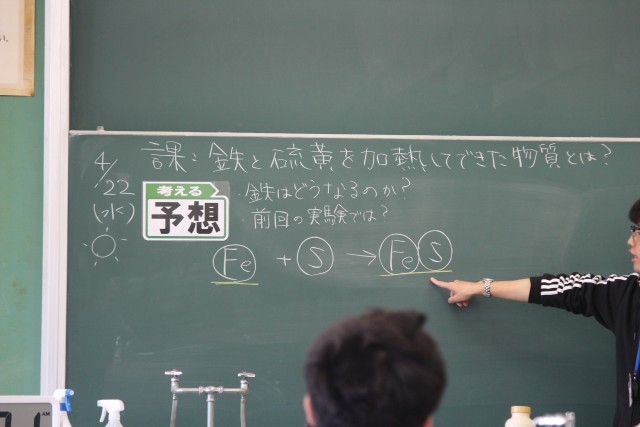 課：鉄と硫黄を加熱してできた物質とは？
4/22
(水)
考える
予想
・鉄はどうなるのか？
・前回の実験では？
Fe + S → FeS
AM